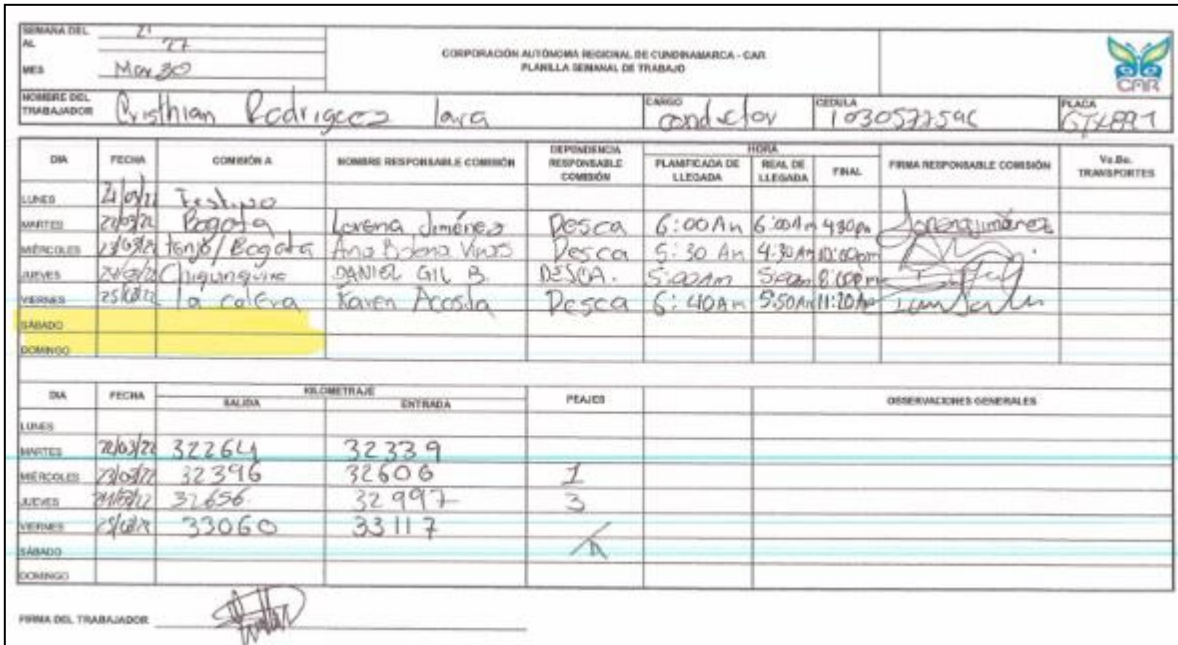 SEMANA DEL 21
AL 27
MES Mar 30
CORPORACIÓN AUTÓNOMA REGIONAL DE CUNDINAMARCA - CAR
PLANILLA SEMANAL DE TRABAJO
CAR
NOMBRE DEL TRABAJADOR Cristhian Rodriguez Lara CARGO conductor CEDULA PLACA
DIA FECHA COMISIÓN A NOMBRE RESPONSABLE COMISIÓN DEPENDENCIA RESPONSABLE COMISIÓN HORA PLANIFICADA DE LLEGADA REAL DE LLEGADA FINAL FIRMA RESPONSABLE COMISIÓN Vo.Bo. TRANSPORTES
LUNES 21/03/22 Festivo
MARTES 22/03/22 Bogota Lorena Jiménez Desca 6:00Am 6:00Am 4:30pm Lorena Jiménez
MIÉRCOLES 23/03/22 Tenjo/Bogota Ana Desca 5:30 Am 4:30Am 10:00pm
JUEVES 24/03/22 Chiquinquira DANIEL GIL B. DESCA. 5:00Am 5:00am 8:00pm
VIERNES 25/03/22 la calera Karen Acosta Desca 6:40Am 5:50Am 11:20Am
SÁBADO
DOMINGO
DIA FECHA KILOMETRAJE SALIDA ENTRADA PEAJES OBSERVACIONES GENERALES
LUNES
MARTES 22/03/22 32264 32339
MIÉRCOLES 23/03/22 32396 32606 1
JUEVES 24/03/22 32656 32997 3
VIERNES 25/03/22 33060 33117
SÁBADO
DOMINGO
FIRMA DEL TRABAJADOR